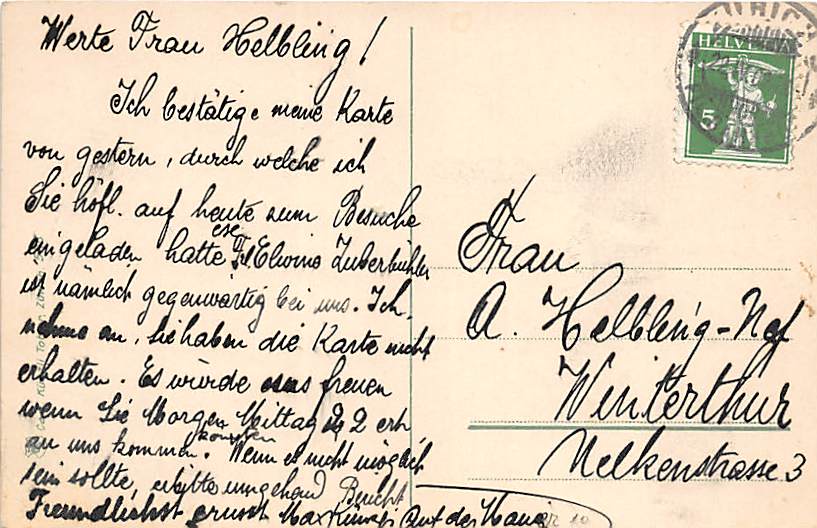 Werte Frau Helbling!
Ich bestätige meine Karte
von gestern, durch welche ich
Sie höfl. auf heute zum Besuche
eingeladen hatte Elwina Zuberbühler
ist nämlich gegenwärtig bei uns. Ich
nehme an, Sie haben die Karte nicht
erhalten. Es würde uns freuen
wenn Sie Morgen Mittag 2 erh
an uns kommen könnten. Wenn es nicht möglich
sein sollte, erbitte umgehend Bericht
Freundlichst grüsst Max Auf der Mauer
HELVETIA
5
Frau
A. Helbling-Nef
Winterthur
Nelkenstrasse 3